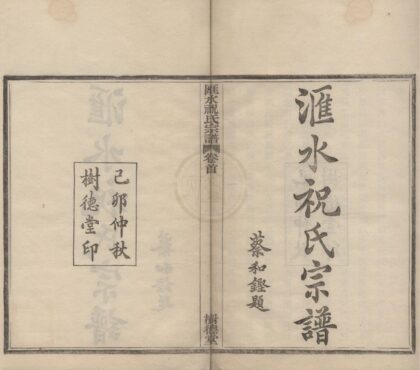 滙水祝氏宗譜
蔡和鏗題
匯水祝氏宗譜
卷首
樹德堂
己卯仲秋
樹德堂印